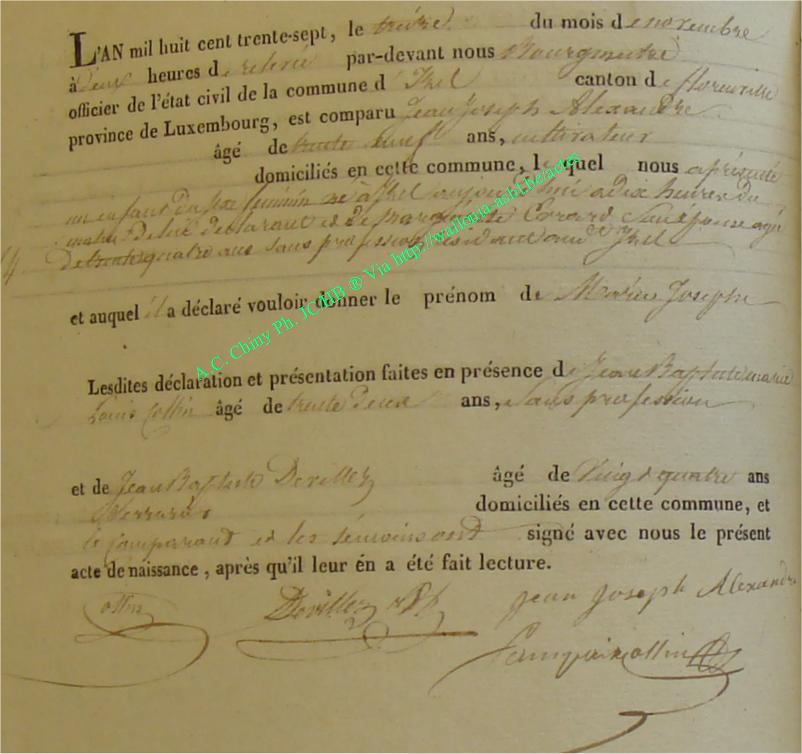 L'AN mil huit cent trente-sept, le treize du mois de novembre
à deux heures de relevée par-devant nous Bourgmestre
officier de l'état civil de la commune d'Izel canton de florenville
province de Luxembourg, est comparu Jean Joseph Alexandre
âgé de trente neuf ans, cultivateur
domiciliés en cette commune, lequel nous a présenté
un enfant du sexe féminin né à Izel aujourd'hui a dix heures du
matin de lui déclarant et de Marguerite son épouse agée
de trente quatre ans sans profession Izel
et auquel il a déclaré vouloir donner le prénom de Marie Josephe
Lesdites déclaration et présentation faites en présence de Jean Baptiste marie
Louis Collin âgé de trente deux ans, sans profession
et de Jean Baptiste Devillez âgé de Vingt quatre ans
domiciliés en cette commune, et
le Comparant et les témoins ont signé avec nous le présent
acte de naissance, après qu'il leur en a été fait lecture.
Jean Joseph Alexandre
Collin Devillez
A.C. Chiny Ph. JCHB ® Via http://wallonia-asbl.be/actes